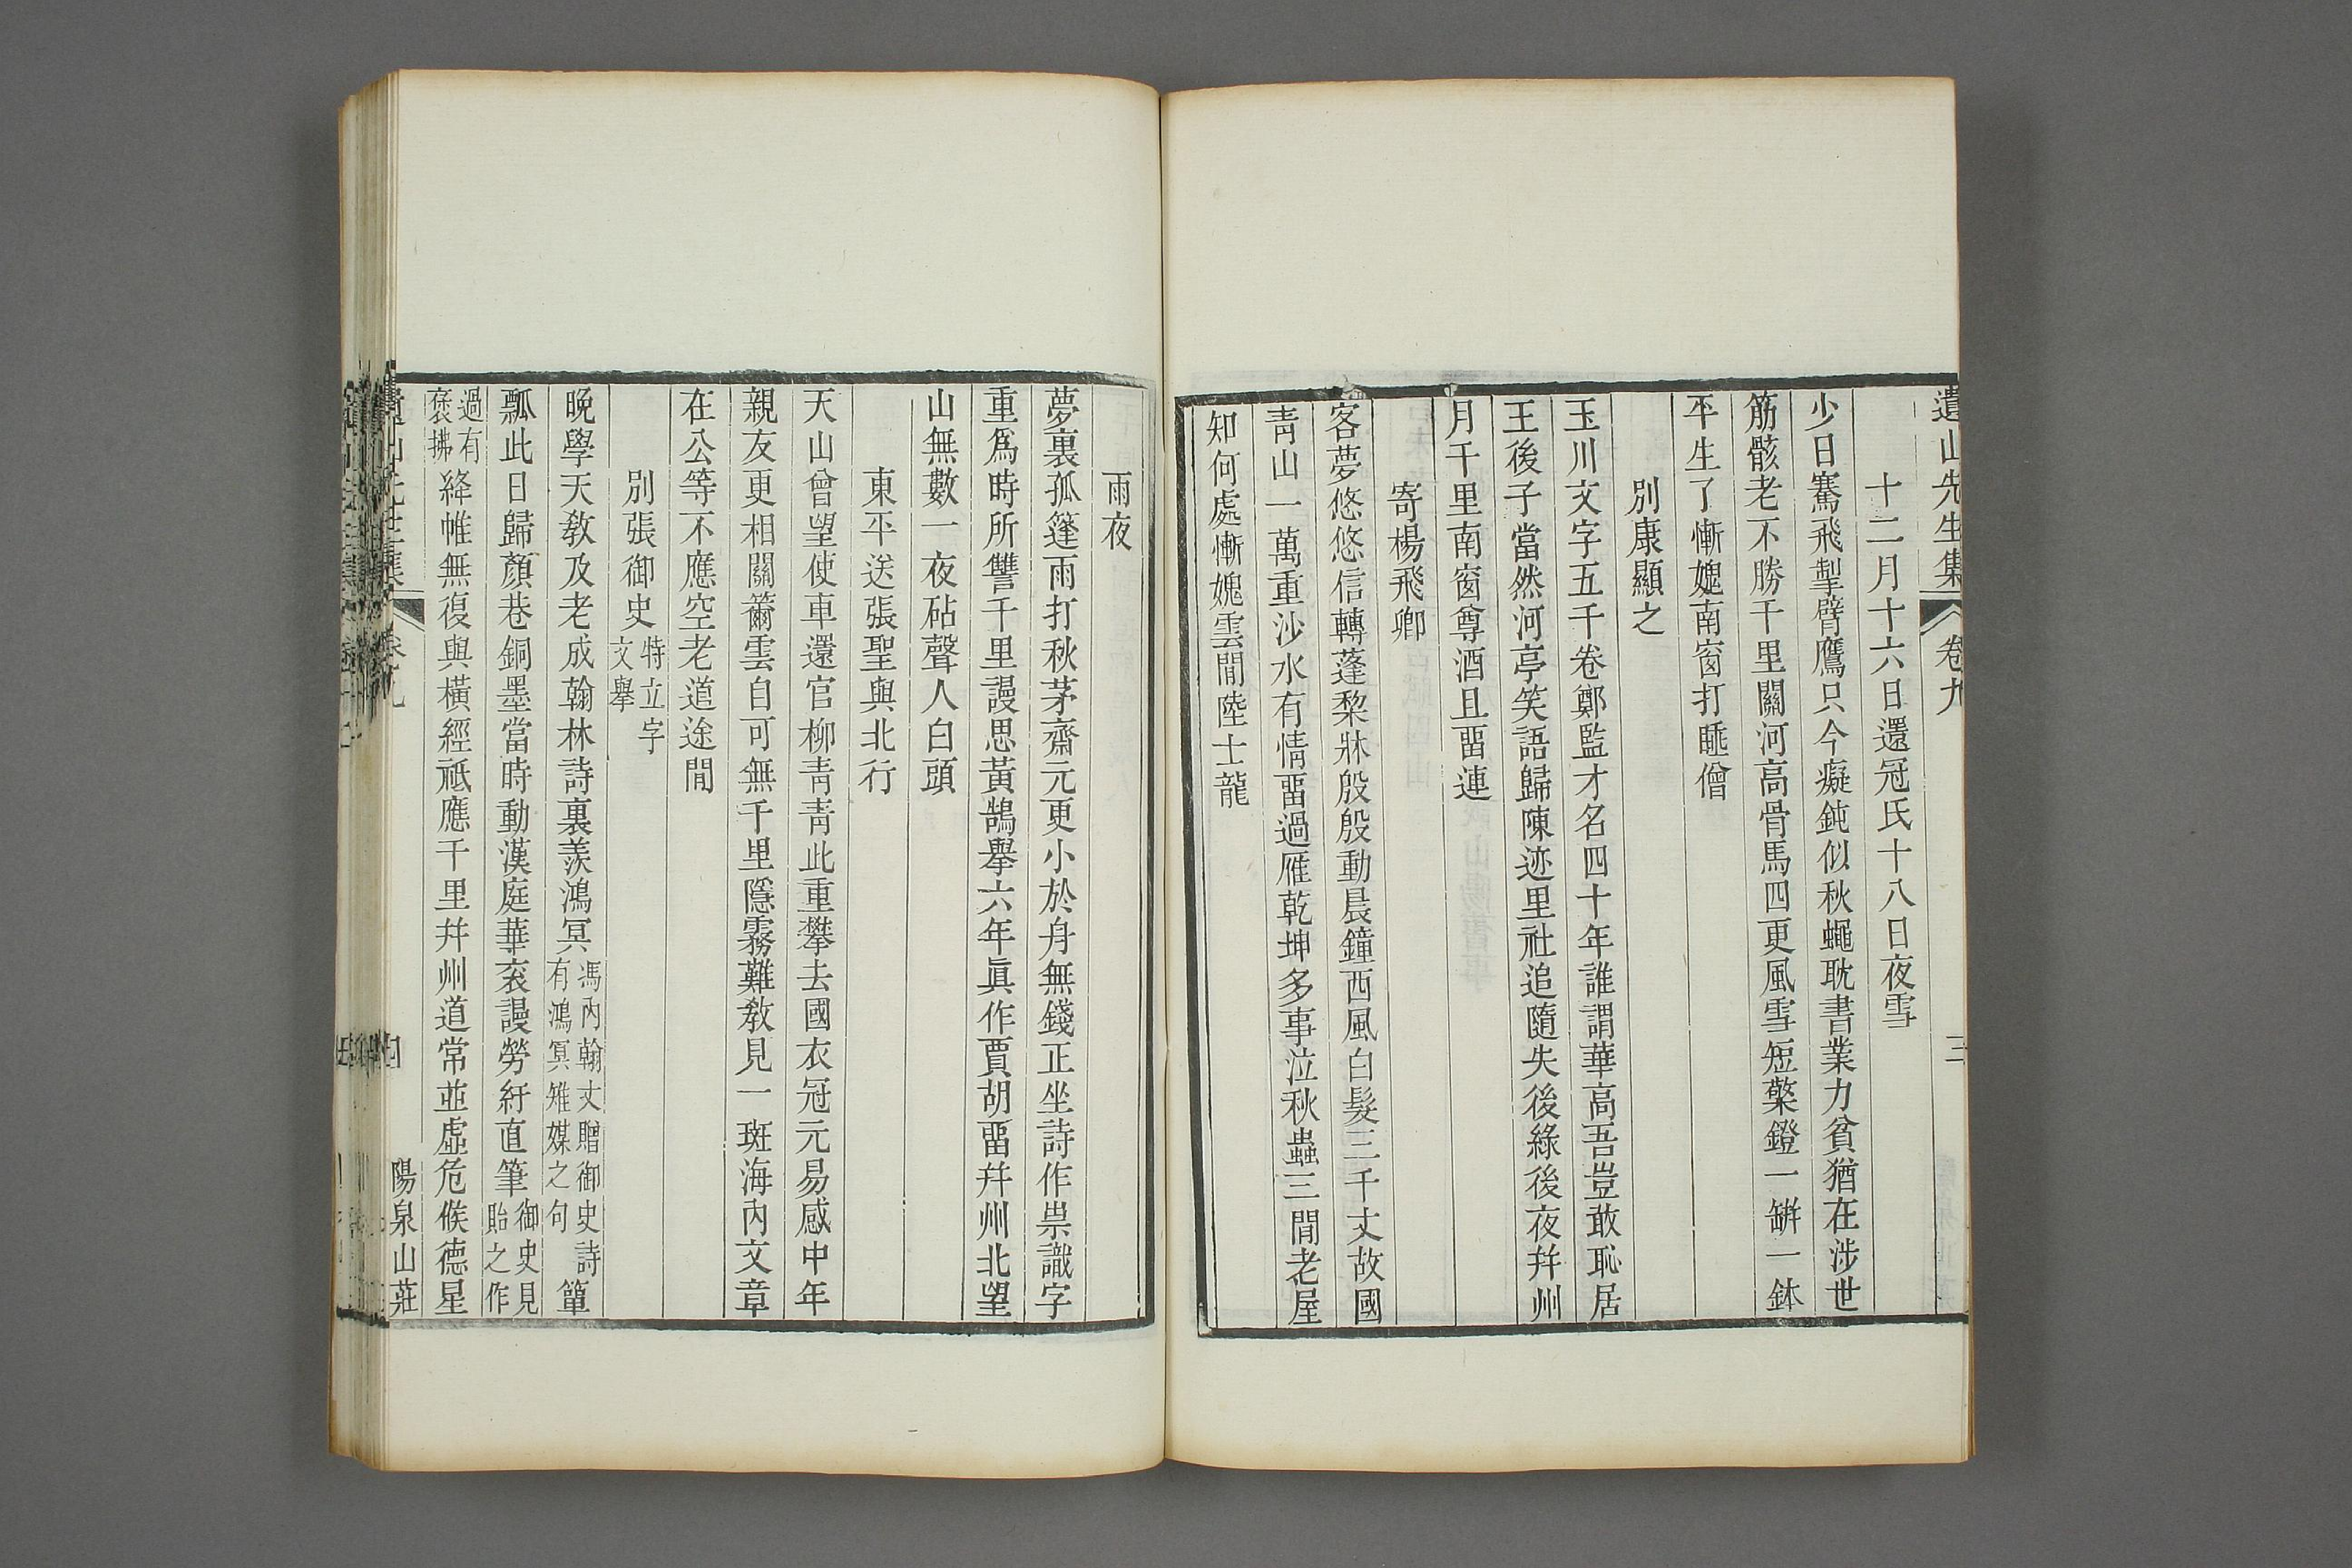 遺山先生集 卷九 三
十二月十六日還冠氏十八日夜雪
少日騫飛掣臂鷹只今癡鈍似秋蠅耽書業力貧猶在涉世
筋骸老不勝千里關河高骨馬四更風雪短檠鐙一缾一鉢
平生了慚媿南窗打睡僧
別康顯之
玉川文字五千卷鄭監才名四十年誰謂華高吾豈敢恥居
王後子當然河亭笑語歸陳迹里社追隨失後緣後夜幷州
月千里南窗尊酒且畱連
寄楊飛卿
客夢悠悠信轉蓬黎牀殷殷動晨鐘西風白髮三千丈故國
靑山一萬重沙水有情畱過雁乾坤多事泣秋蟲三閒老屋
知何處慚媿雲閒陸士龍
雨夜
夢裏孤篷雨打秋茅齋元更小於舟無錢正坐詩作祟識字
重爲時所讐千里謾思黃鵠舉六年眞作賈胡畱幷州北望
山無數一夜砧聲人白頭
東平送張聖與北行
天山曾望使車還官柳靑靑此重攀去國衣冠元易感中年
親友更相關籋雲自可無千里隱霧難敎見一斑海內文章
在公等不應空老道途閒
別張御史特立字文舉
晚學天敎及老成翰林詩裏羨鴻冥馮內翰丈贈御史詩有鴻冥雉媒之句簞
瓢此日歸顏巷銅墨當時動漢庭華衮謾勞紆直筆御史見貽之作
過有襃拂絳帷無復與橫經祗應千里幷州道常並虛危候德星
陽泉山莊